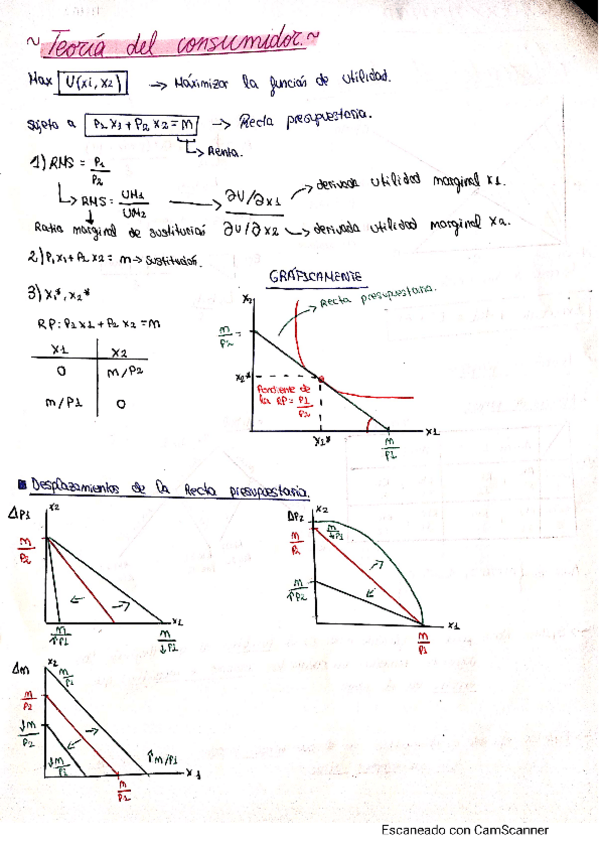 ~ Teoría del consumidor. ~
Max U(x1, x2) → Máximizar la función de utilidad.
sujeto a P1 x1 + P2 x2 = m → Recta presupuestaria.
→ Renta.
1) RMS = P1/P2
→ RMS = UM1/UM2 → ∂U/∂x1 → derivada utilidad marginal x1.
Ratio marginal de sustitución ∂U/∂x2 → derivada utilidad marginal x2.
2) P1x1 + P2 x2 = m → sustitución.
GRÁFICAMENTE
3) x1*, x2*
RP: P1 x1 + P2 x2 = m
x1 x2
0 m/P2
m/P1 0
x2
Recta presupuestaria.
m/P2 =
x2*
Pendiente de
la RP = P1/P2
x1*
m/P1
x1
Desplazamientos de la Recta presupuestaria.
ΔP1
x2
m/P2
m/↑P1
m/↓P1
x1
ΔP2
x2
m/↓P1
m/P2
m/↑P2
m/P1
x1
Δm
x2
m/P1
m/P2
↓m/P2
↓m/P1
m/P1
↑m/P1
x1
Escaneado con CamScanner